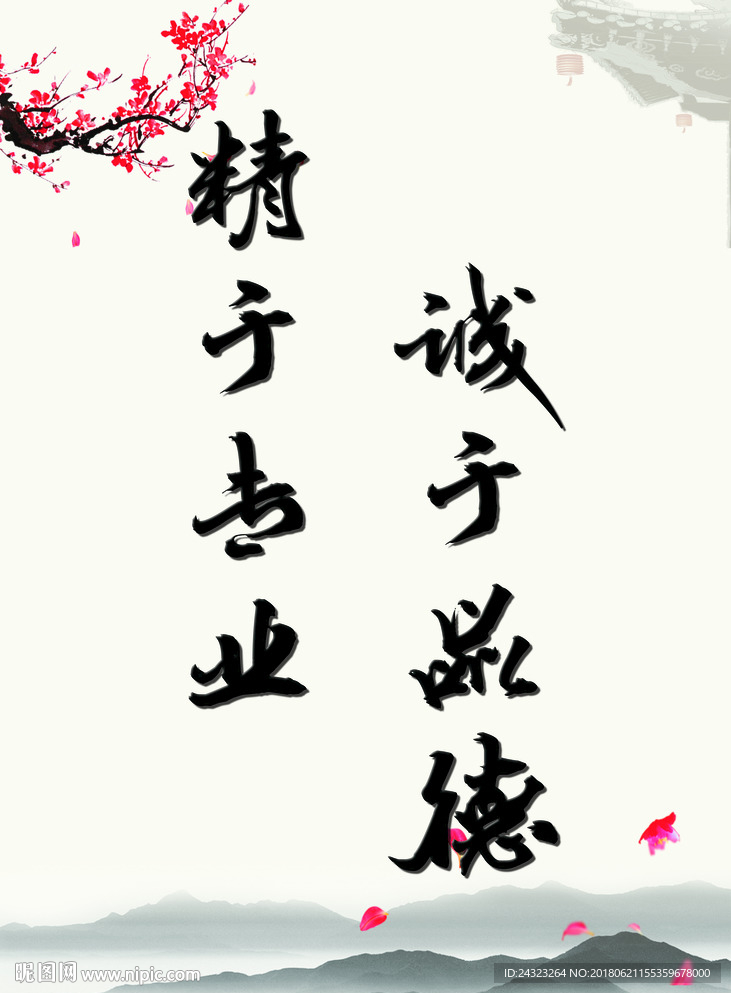 精于专业
诚于品德
昵图网 www.nipic.com
ID:24323264 NO:20180621155359678000